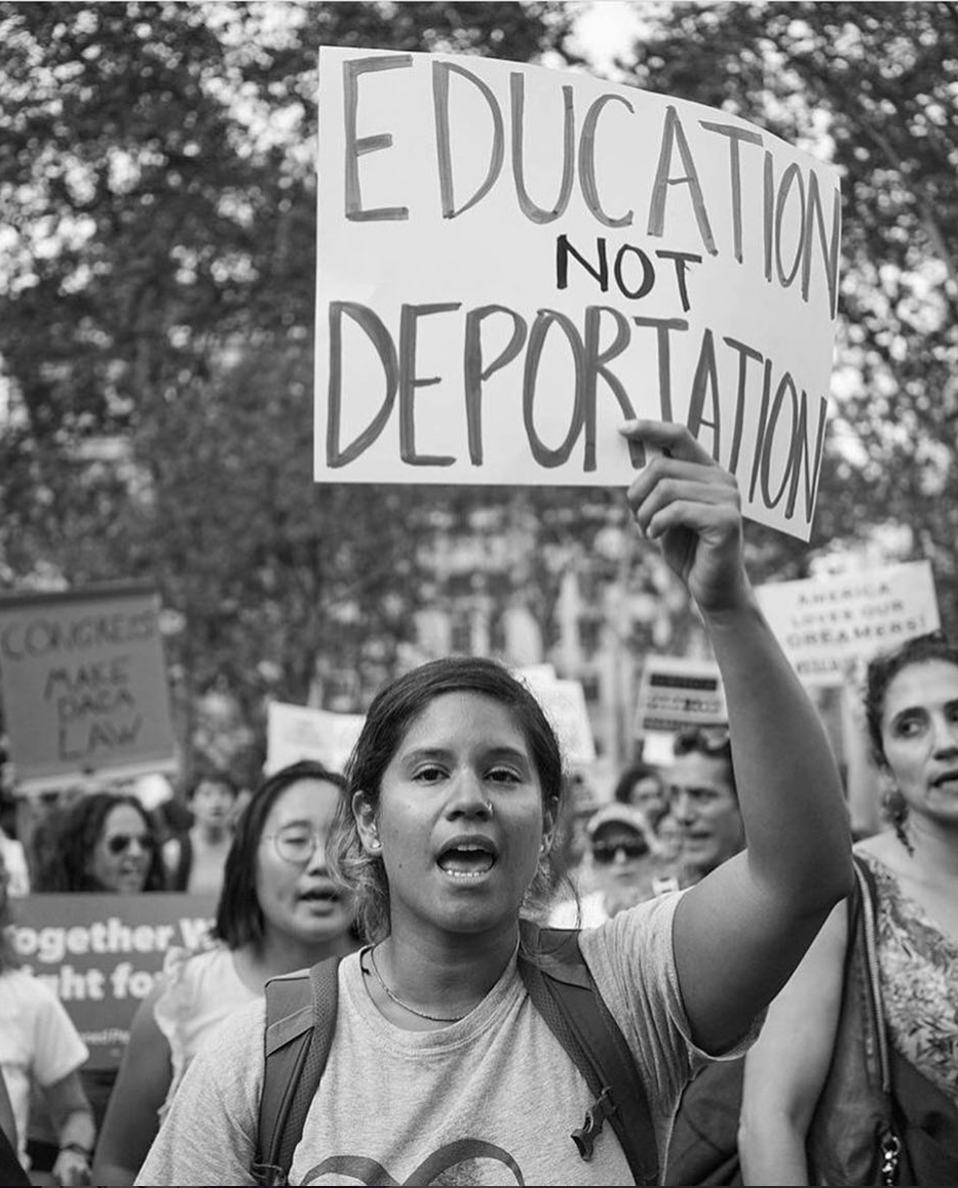 EDUCATION
NOT
DEPORTATION
CONGRESS
MAKE
DACA
LAW
AMERICA
LOVES OUR
DREAMERS!
ogether W
ght fo